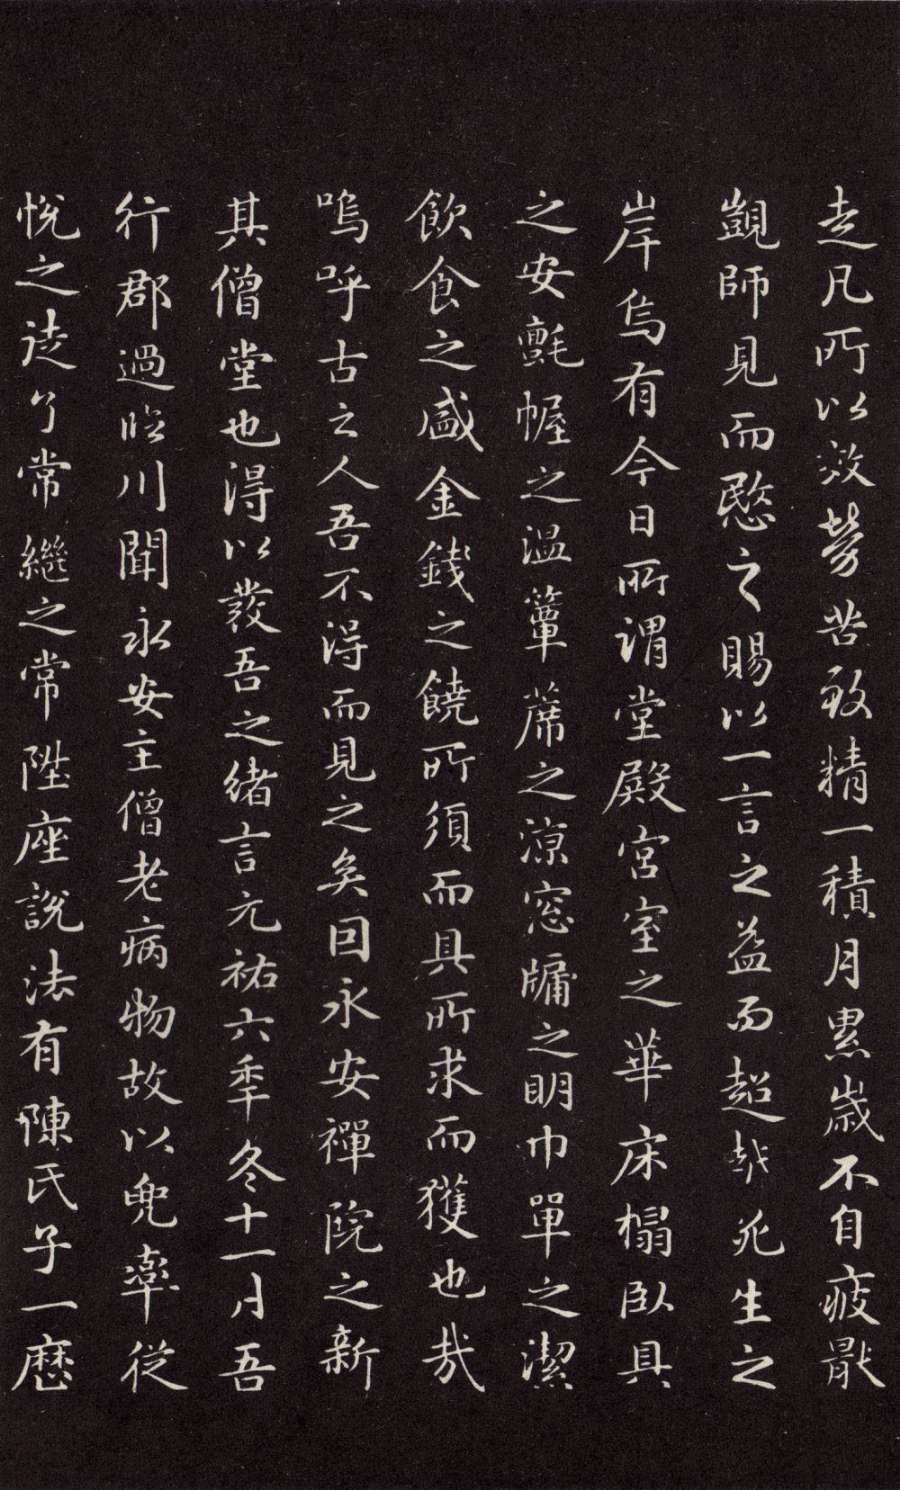 走凡所以效勞苦致精一積月累歲不自疲厭
覬師見而愍之賜以一言之益而超越死生之
岸烏有今日所謂堂殿宮室之華床榻臥具
之安氈幄之温簟蓆之凉窓牖之明巾單之潔
飲食之盛金錢之饒所須而具所求而獲也哉
嗚呼古之人吾不得而見之矣因永安禪院之新
其僧堂也得以發吾之緒言元祐六季冬十一月吾
行郡過臨川聞永安主僧老病物故以兜率從
悅之徒了常繼之常陞座説法有陳氏子一歷